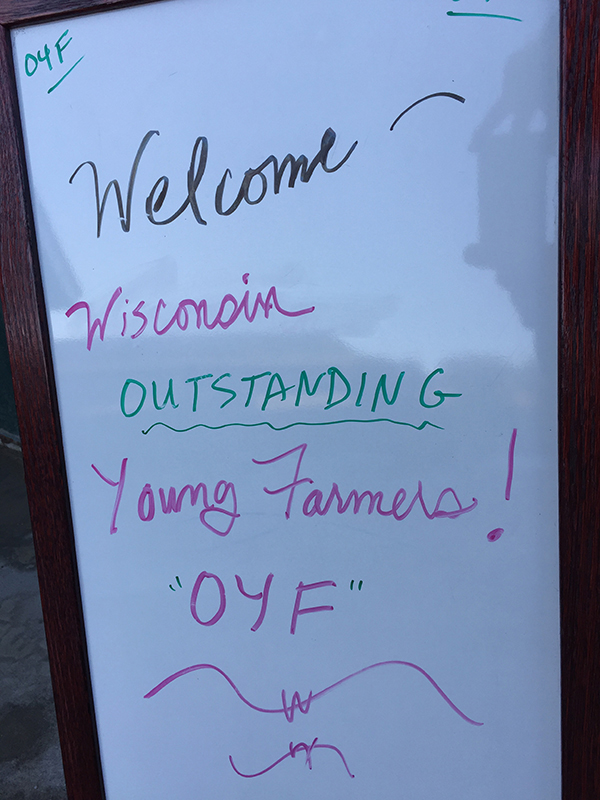 OYF
Welcome
Wisconsin
OUTSTANDING
Young Farmers!
"OYF"